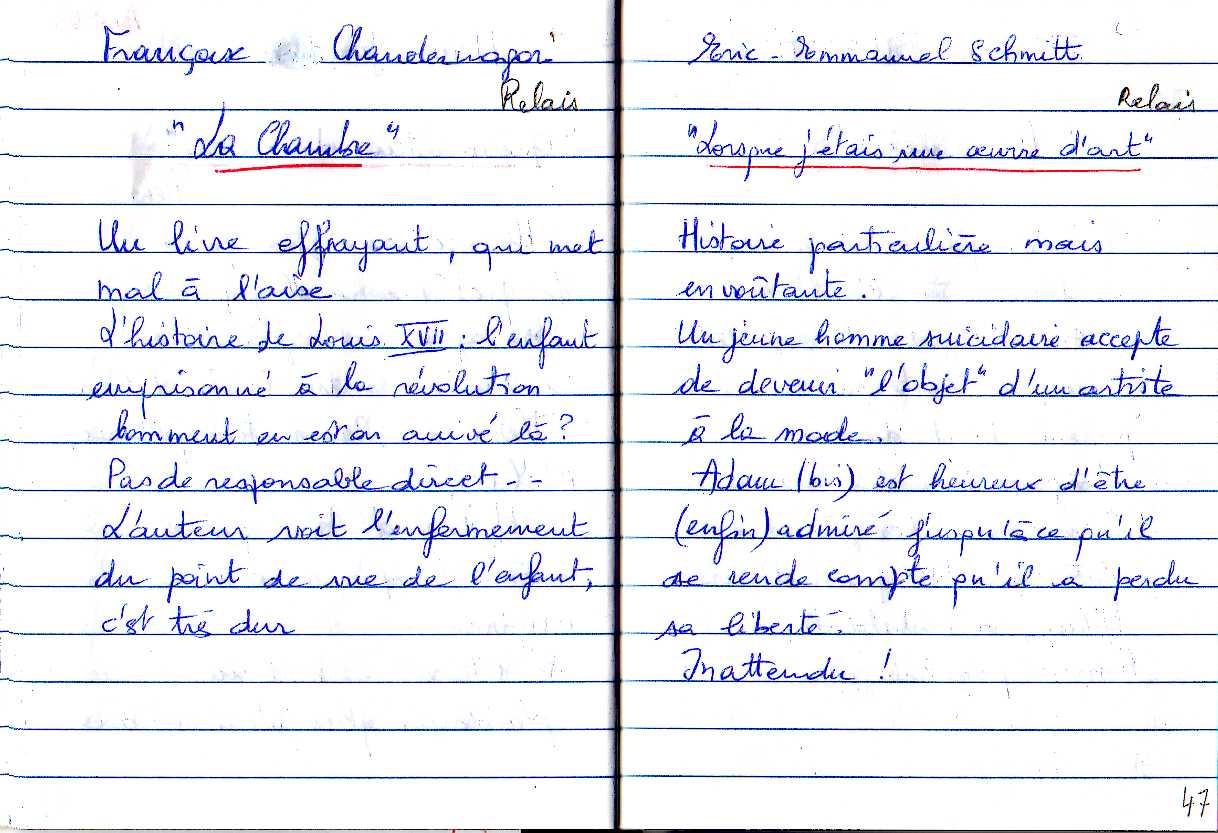 Françoise Chandernagor
Relais
"La Chambre"
Un livre effrayant, qui met
mal à l'aise
L'histoire de Louis XVII : l'enfant
emprisonné à la révolution
Comment en est on arrivé là ?
Pas de responsable direct - -
L'auteur voit l'enfermement
du point de vue de l'enfant,
c'est très dur
Eric - Emmanuel Schmitt
Relais
"Lorsque j'étais une œuvre d'art"
Histoire particulière mais
envoûtante.
Un jeune homme suicidaire accepte
de devenir "l'objet" d'un artiste
à la mode.
Adam (bis) est heureux d'être
(enfin) admiré jusqu'à ce qu'il
se rende compte qu'il a perdu
sa liberté.
Inattendu !
47